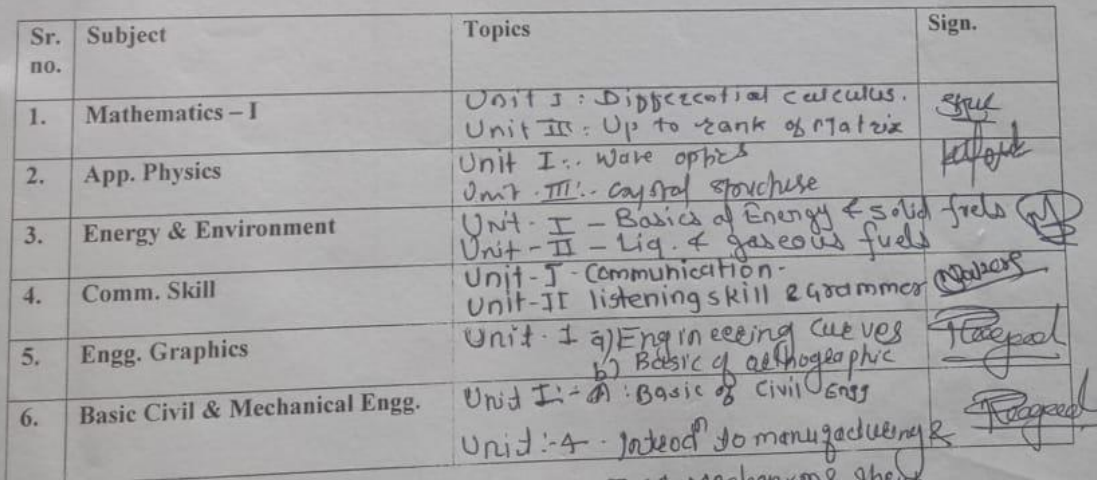 Sr. no. Subject Topics Sign.
1. Mathematics – I Unit I : Differential calculus.
Unit III : Up to rank of Matrix
2. App. Physics Unit I :. Wave optics
Unit .III:. Crystal structure
3. Energy & Environment Unit - I – Basics of Energy & Solid fuels
Unit - II – Liq. & gaseous fuels
4. Comm. Skill Unit - I - Communication -
Unit-II listening skill & Grammer
5. Engg. Graphics Unit - I a) Engineering Curves
b) Basic of orthographic
6. Basic Civil & Mechanical Engg. Unit I :- A : Basic of Civil Engg
Unit :- 4 - Introdn to manufacturing &